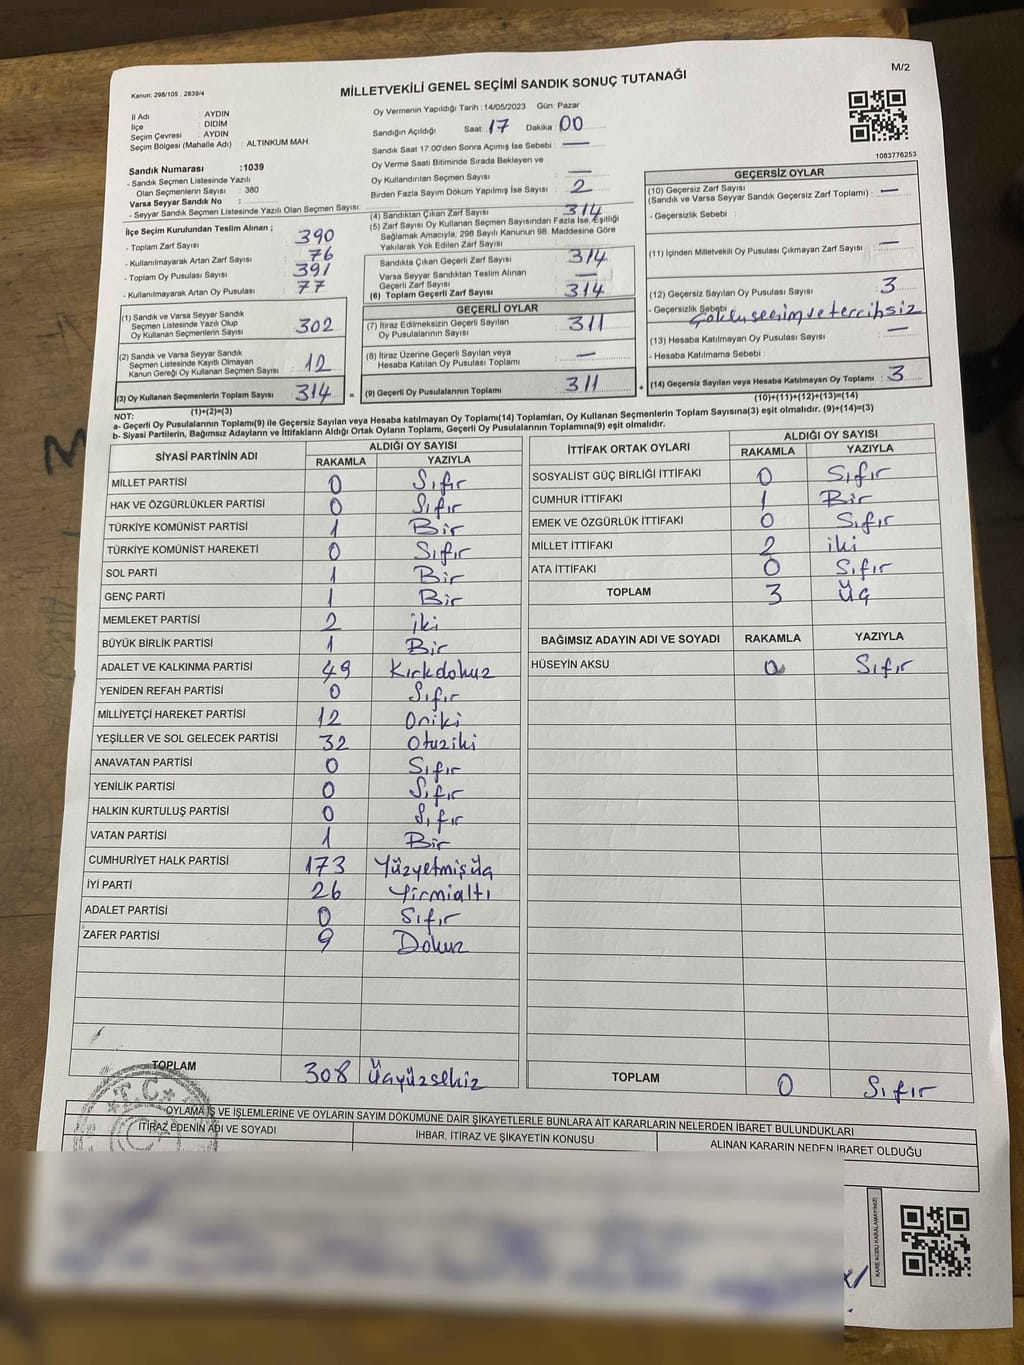 M/2
Kanun: 298/105 , 2839/4
MİLLETVEKİLİ GENEL SEÇİMİ SANDIK SONUÇ TUTANAĞI
İl Adı : AYDIN
İlçe : DİDİM
Seçim Çevresi : AYDIN
Seçim Bölgesi (Mahalle Adı) : ALTINKUM MAH
Sandık Numarası :1039
- Sandık Seçmen Listesinde Yazılı
Olan Seçmenlerin Sayısı : 380
Varsa Seyyar Sandık No :
- Seyyar Sandık Seçmen Listesinde Yazılı Olan Seçmen Sayısı:
Oy Vermenin Yapıldığı Tarih : 14/05/2023 Gün: Pazar
Sandığın Açıldığı Saat: 17 Dakika 00
Sandık Saat 17:00'den Sonra Açımış İse Sebebi : —
Oy Verme Saati Bitiminde Sırada Bekleyen ve
Oy Kullandırılan Seçmen Sayısı : —
Birden Fazla Sayım Döküm Yapılmış İse Sayısı : 2
1083776253
İlçe Seçim Kurulundan Teslim Alınan ;
- Toplam Zarf Sayısı : 390
- Kullanılmayarak Artan Zarf Sayısı : 76
- Toplam Oy Pusulası Sayısı : 391
- Kullanılmayarak Artan Oy Pusulası : 77
(1) Sandık ve Varsa Seyyar Sandık
Seçmen Listesinde Yazılı Olup
Oy Kullanan Seçmenlerin Sayısı : 302
(2) Sandık ve Varsa Seyyar Sandık
Seçmen Listesinde Kayıtlı Olmayan
Kanun Gereği Oy Kullanan Seçmen Sayısı : 12
(3) Oy Kullanan Seçmenlerin Toplam Sayısı : 314 =
(1)+(2)=(3)
(4) Sandıktan Çıkan Zarf Sayısı : 314
(5) Zarf Sayısı Oy Kullanan Seçmen Sayısından Fazla İse, Eşitliği
Sağlamak Amacıyla, 298 Sayılı Kanunun 98. Maddesine Göre
Yakılarak Yok Edilen Zarf Sayısı :
Sandıkta Çıkan Geçerli Zarf Sayısı : 314
Varsa Seyyar Sandıktan Teslim Alınan
Geçerli Zarf Sayısı : —
(6) Toplam Geçerli Zarf Sayısı : 314
GEÇERLİ OYLAR
(7) İtiraz Edilmeksizin Geçerli Sayılan
Oy Pusulalarının Sayısı : 311
(8) İtiraz Üzerine Geçerli Sayılan veya
Hesaba Katılan Oy Pusulası Toplamı : —
(9) Geçerli Oy Pusulalarının Toplamı : 311 +
GEÇERSİZ OYLAR
(10) Geçersiz Zarf Sayısı
(Sandık ve Varsa Seyyar Sandık Geçersiz Zarf Toplamı) : —
- Geçersizlik Sebebi :
(11) İçinden Milletvekili Oy Pusulası Çıkmayan Zarf Sayısı : —
(12) Geçersiz Sayılan Oy Pusulası Sayısı : 3
- Geçersizlik Sebebi : Çoklu seçim ve tercihsiz
(13) Hesaba Katılmayan Oy Pusulası Sayısı : —
- Hesaba Katılmama Sebebi :
(14) Geçersiz Sayılan veya Hesaba Katılmayan Oy Toplamı : 3
(10)+(11)+(12)+(13)=(14)
NOT:
a- Geçerli Oy Pusulalarının Toplamı(9) ile Geçersiz Sayılan veya Hesaba katılmayan Oy Toplamı(14) Toplamları, Oy Kullanan Seçmenlerin Toplam Sayısına(3) eşit olmalıdır. (9)+(14)=(3)
b- Siyasi Partilerin, Bağımsız Adayların ve İttifakların Aldığı Ortak Oyların Toplamı, Geçerli Oy Pusulalarının Toplamına(9) eşit olmalıdır.
SİYASİ PARTİNİN ADI ALDIĞI OY SAYISI
RAKAMLA YAZIYLA
MİLLET PARTİSİ 0 Sıfır
HAK VE ÖZGÜRLÜKLER PARTİSİ 0 Sıfır
TÜRKİYE KOMÜNİST PARTİSİ 1 Bir
TÜRKİYE KOMÜNİST HAREKETİ 0 Sıfır
SOL PARTİ 1 Bir
GENÇ PARTİ 1 Bir
MEMLEKET PARTİSİ 2 iki
BÜYÜK BİRLİK PARTİSİ 1 Bir
ADALET VE KALKINMA PARTİSİ 49 Kırkdokuz
YENİDEN REFAH PARTİSİ 0 Sıfır
MİLLİYETÇİ HAREKET PARTİSİ 12 Oniki
YEŞİLLER VE SOL GELECEK PARTİSİ 32 Otuziki
ANAVATAN PARTİSİ 0 Sıfır
YENİLİK PARTİSİ 0 Sıfır
HALKIN KURTULUŞ PARTİSİ 0 Sıfır
VATAN PARTİSİ 1 Bir
CUMHURİYET HALK PARTİSİ 173 Yüzyetmişüç
İYİ PARTİ 26 Yirmialtı
ADALET PARTİSİ 0 Sıfır
ZAFER PARTİSİ 9 Dokuz
TOPLAM 308 Üçyüzsekiz
İTTİFAK ORTAK OYLARI ALDIĞI OY SAYISI
RAKAMLA YAZIYLA
SOSYALİST GÜÇ BİRLİĞİ İTTİFAKI 0 Sıfır
CUMHUR İTTİFAKI 1 Bir
EMEK VE ÖZGÜRLÜK İTTİFAKI 0 Sıfır
MİLLET İTTİFAKI 2 iki
ATA İTTİFAKI 0 Sıfır
TOPLAM 3 Üç
BAĞIMSIZ ADAYIN ADI VE SOYADI RAKAMLA YAZIYLA
HÜSEYİN AKSU 0 Sıfır
TOPLAM 0 Sıfır
T.C.
OYLAMA İŞ VE İŞLEMLERİNE VE OYLARIN SAYIM DÖKÜMÜNE DAİR ŞİKAYETLERLE BUNLARA AİT KARARLARIN NELERDEN İBARET BULUNDUKLARI
İTİRAZ EDENİN ADI VE SOYADI İHBAR, İTİRAZ VE ŞİKAYETİN KONUSU ALINAN KARARIN NEDEN İBARET OLDUĞU
KARE KODU KARALAMAYINIZ!